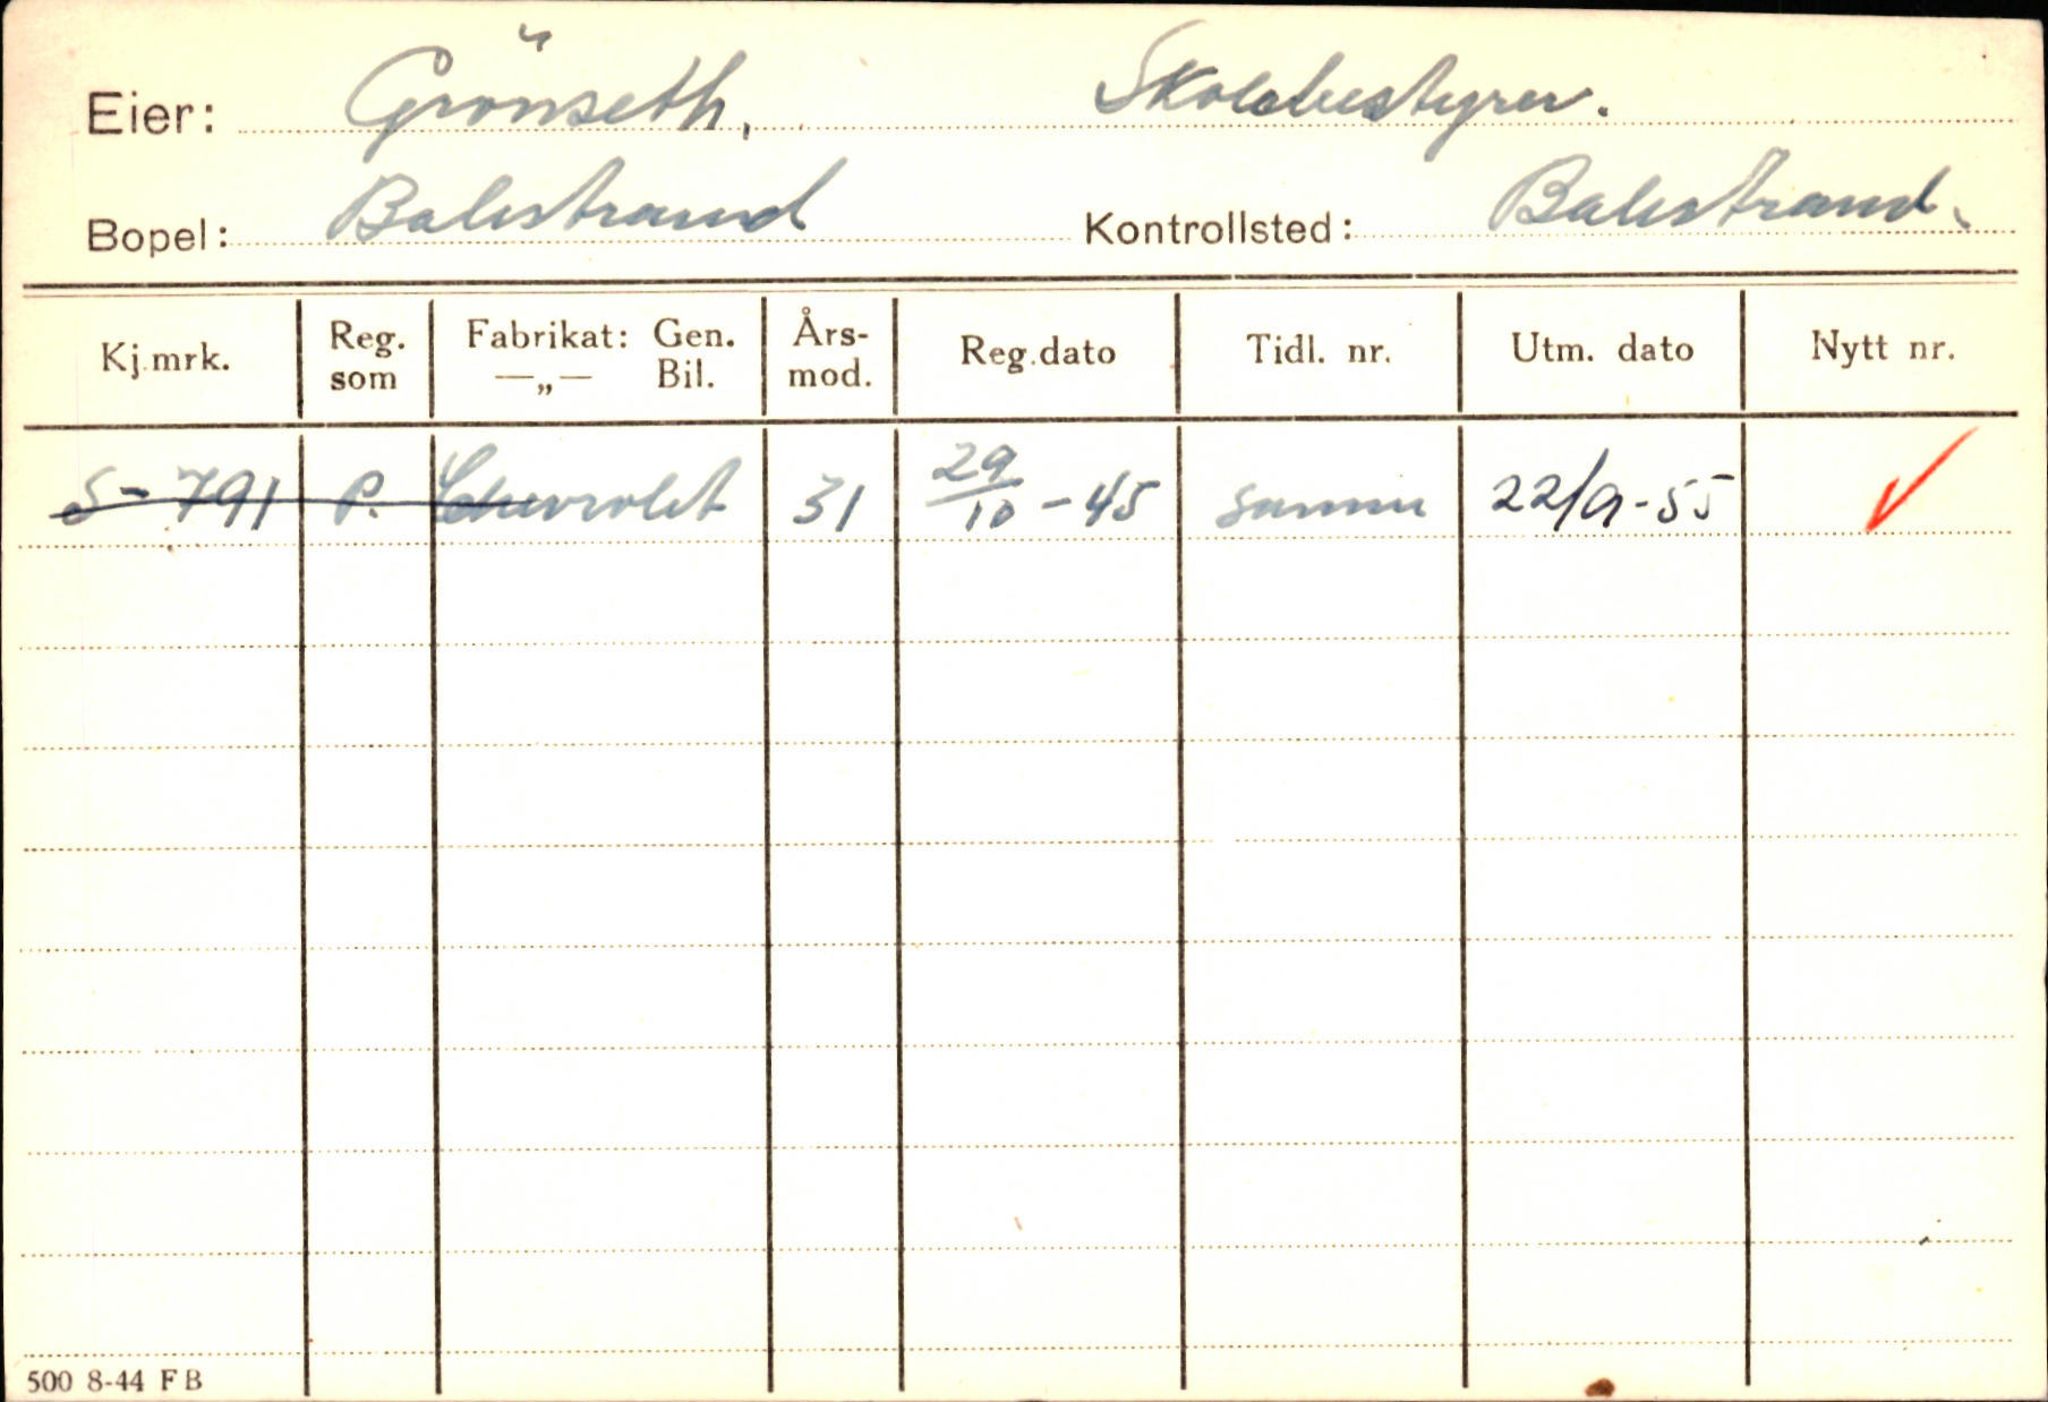 Eier: Grönseth, Skolebestyrer.
Bopel: Balestrand Kontrollsted: Balestrand.
Kj.mrk. Reg. som Fabrikat: Gen. —„— Bil. Års- mod. Reg.dato Tidl. nr. Utm. dato Nytt nr.
S-791 P. Chevrolet 31 29/10-45 samme 22/9-55
500 8-44 FB